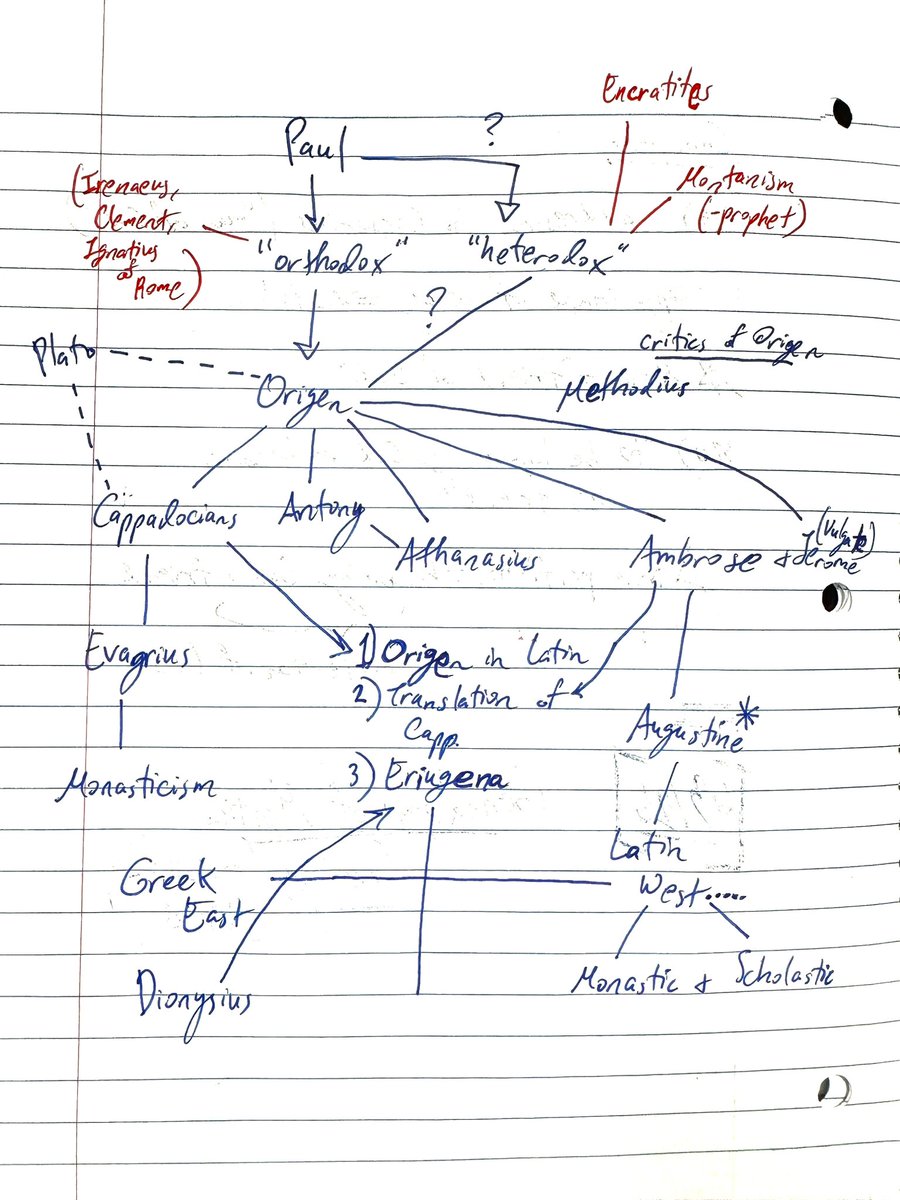 Encratites
?
Paul
Montanism
(-prophet)
(Irenaeus,
Clement,
Ignatius
of
Rome)
"orthodox"
"heterodox"
?
Plato
critics of Origen
Origen
Methodius
Cappadocians
Antony
Athanasius
(Vulgate)
Ambrose + Jerome
Evagrius
1) Origen in Latin
2) Translation of
Capp.
Augustine*
3) Eriugena
Monasticism
Latin
West.....
Greek
East
Monastic + Scholastic
Dionysius